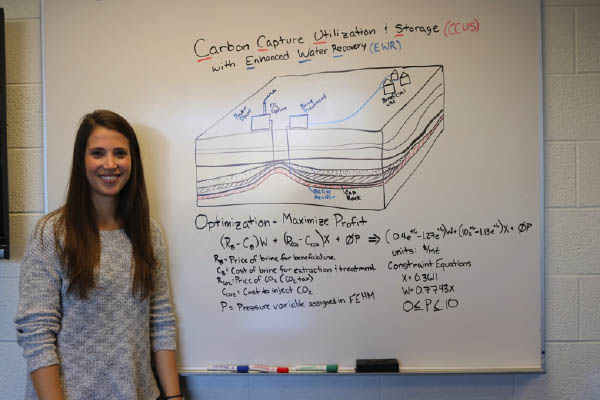 Carbon Capture Utilization & Storage (CCUS)
with Enhanced Water Recovery (EWR)
Power Plant
CO2 Capture
Brine Treatment
Beneficial Use
Saline Aquifer
Cap Rock
Optimization - Maximize Profit
(RB - CB)W + (RCO2 - CCO2)X + ØP ⇒ (0.4e+6 - 1.27e+6)W + (10e+6 - 1.13e+6)X + ØP
units: $/Mt
RB = Price of brine for beneficial use
CB = Cost of brine for extraction & treatment
RCO2 = Price of CO2 (CO2 tax)
CCO2 = Cost to inject CO2
P = Pressure variable assigned in FEHM
Constraint Equations
X = 0.3611
W = 0.7793X
0 ≤ P ≤ 10